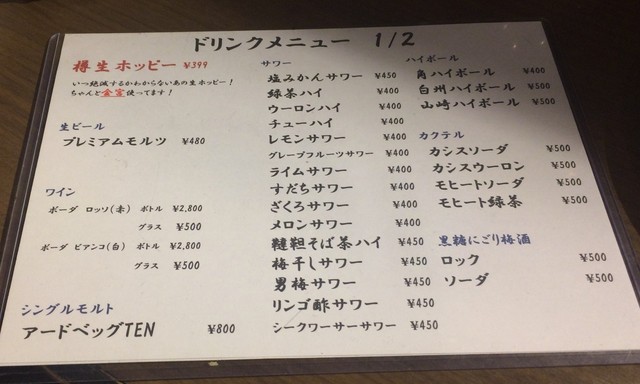 ドリンクメニュー 1/2
樽生ホッピー ¥399
いつ絶滅するかわからないあの生ホッピー!
ちゃんと金宮使ってます!
生ビール
プレミアムモルツ ¥480
ワイン
ボーダ ロッソ(赤) ボトル ¥2,800
グラス ¥500
ボーダ ビアンコ(白) ボトル ¥2,800
グラス ¥500
シングルモルト
アードベッグTEN ¥800
サワー
塩みかんサワー ¥450
緑茶ハイ ¥400
ウーロンハイ ¥400
チューハイ ¥400
レモンサワー ¥400
グレープフルーツサワー ¥400
ライムサワー ¥400
すだちサワー ¥400
ざくろサワー ¥400
メロンサワー ¥400
韃靼そば茶ハイ ¥450
梅干しサワー ¥450
男梅サワー ¥450
リンゴ酢サワー ¥450
シークワーサーサワー ¥450
ハイボール
角ハイボール ¥400
白州ハイボール ¥500
山崎ハイボール ¥500
カクテル
カシスソーダ ¥500
カシスウーロン ¥500
モヒートソーダ ¥500
モヒート緑茶 ¥500
黒糖にごり梅酒
ロック ¥500
ソーダ ¥500